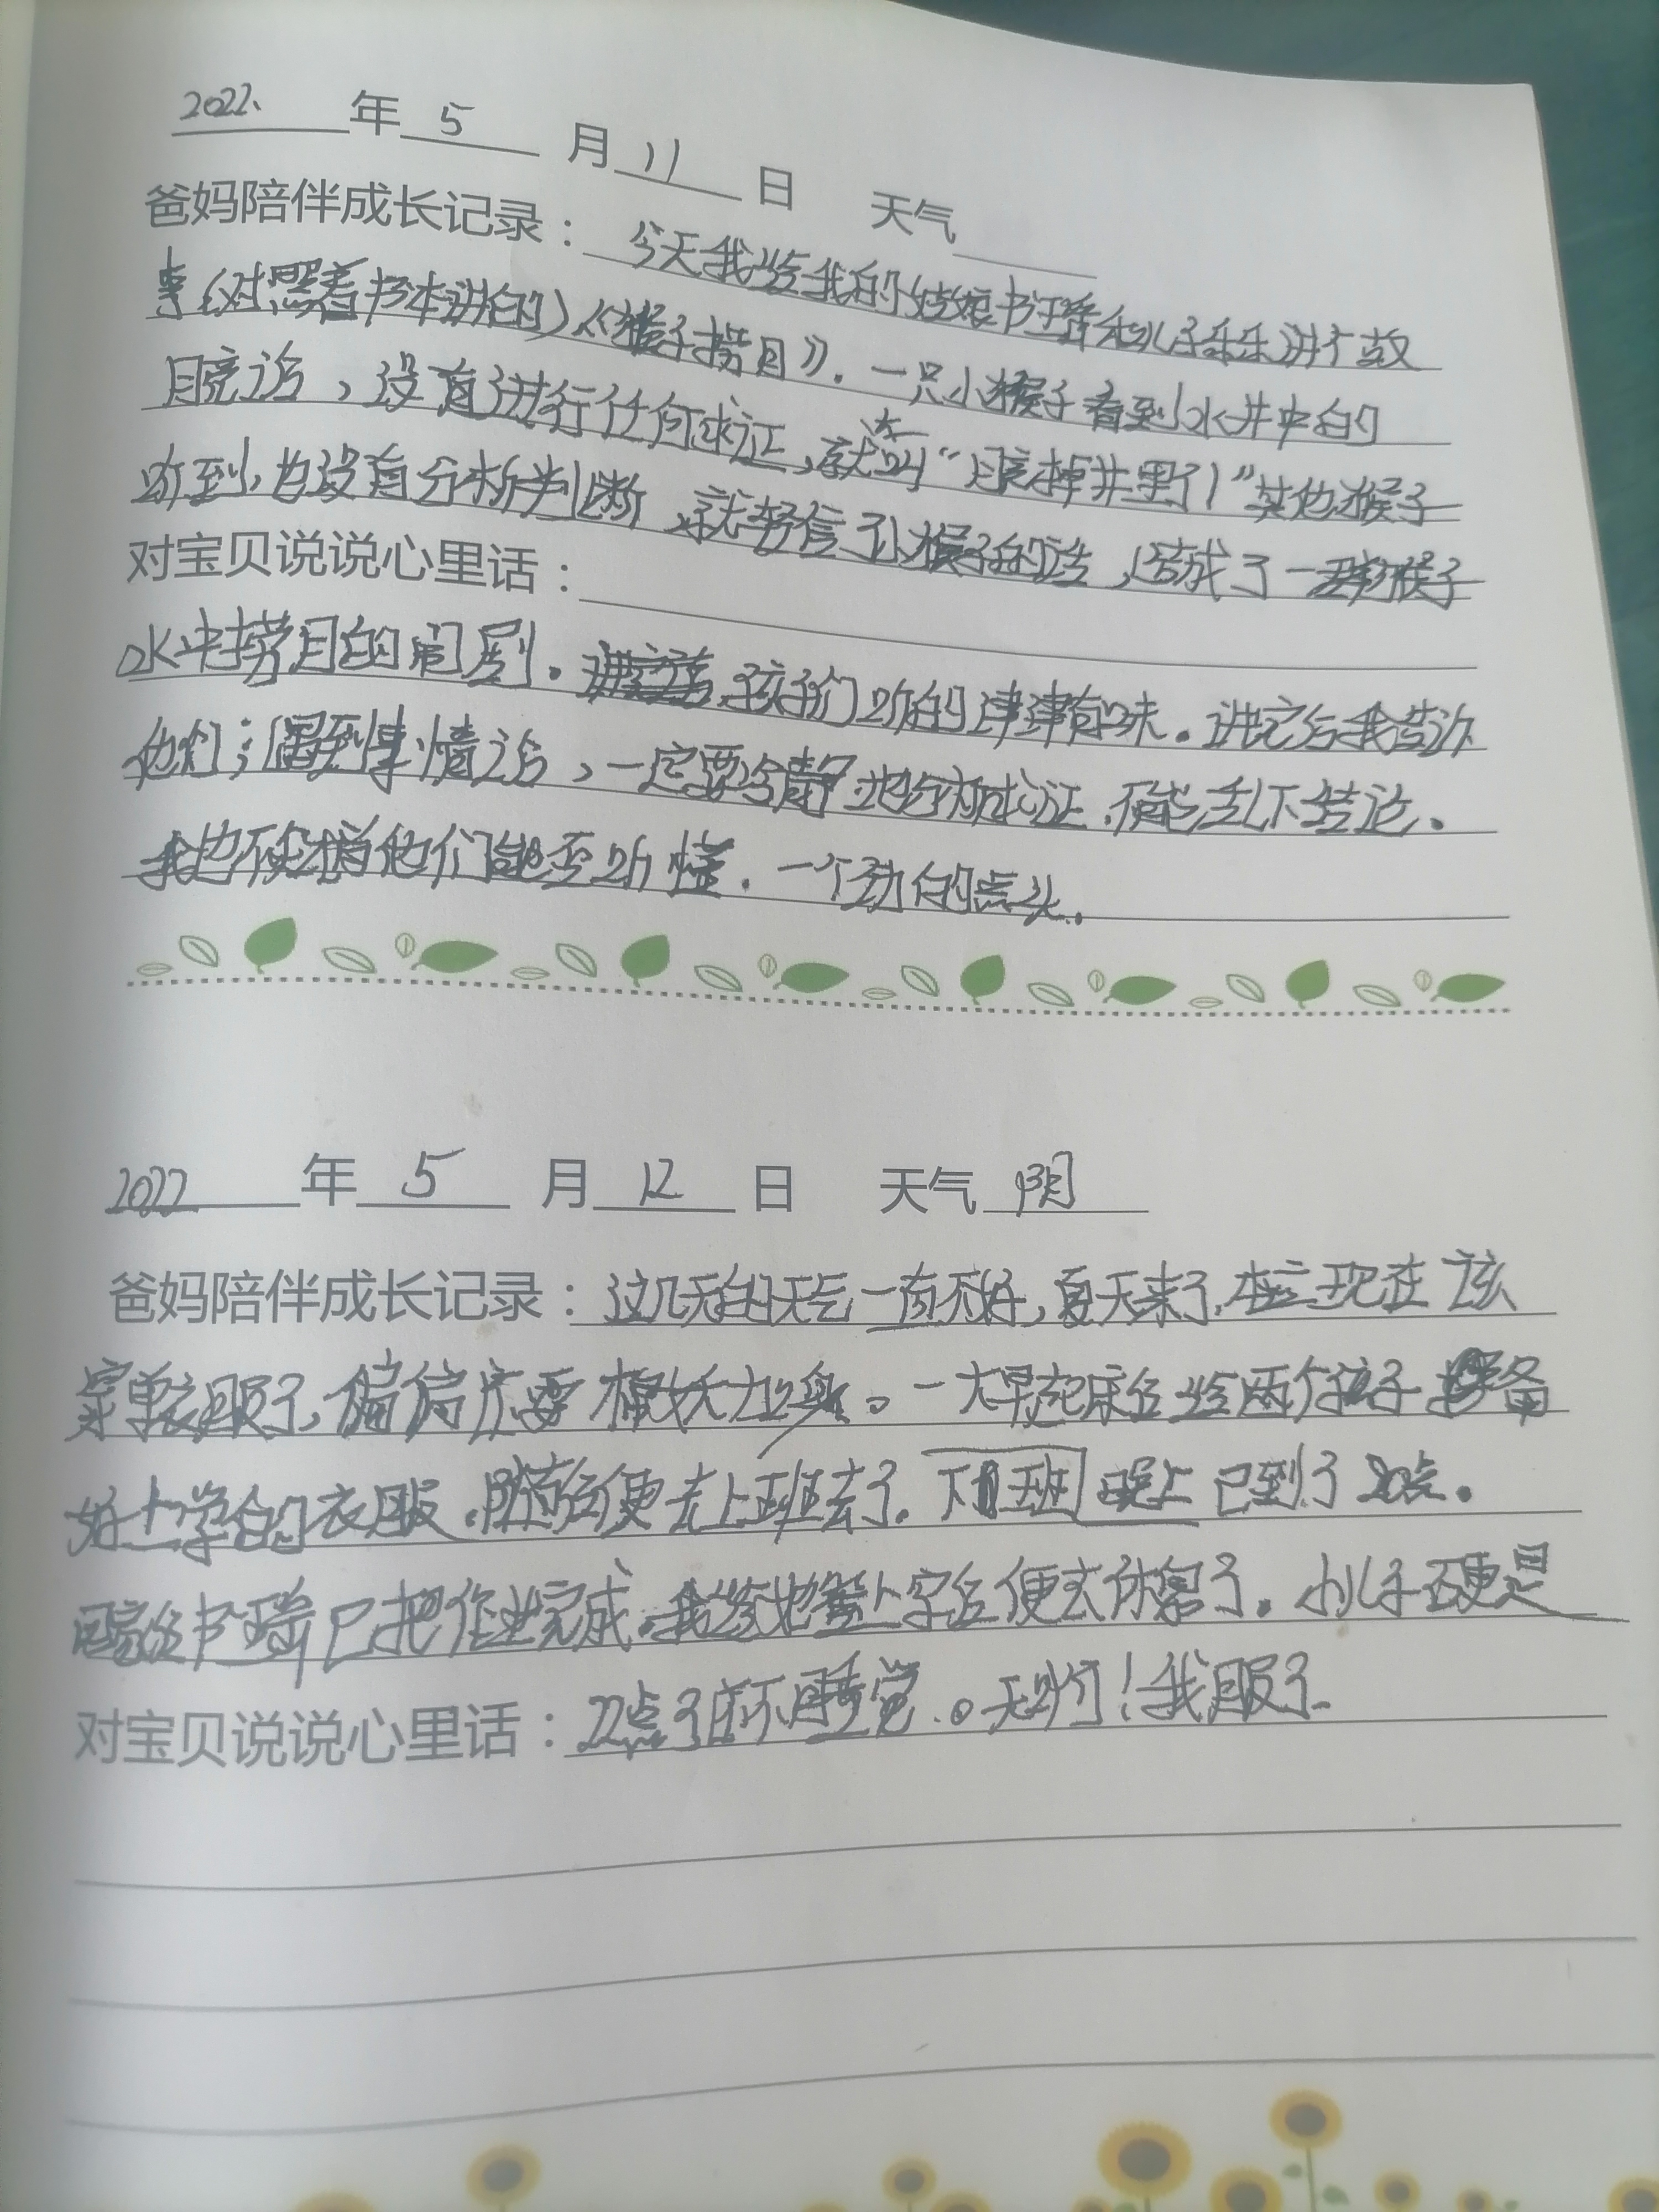 2022、年 5 月 11 日 天气
爸妈陪伴成长记录：今天我给我的姑娘书瑶和儿子乐乐讲个故
事（对照着书本讲的）《猴子捞月》。一只小猴子看到水井中的
月亮后，没有进行任何求证，就大叫“月亮掉井里了”其他猴子
听到，也没有分析判断，就轻信了小猴子的话，造成了一群猴子
对宝贝说说心里话：
水中捞月的闹剧。孩子们听的津津有味。讲完后我告诉
他们；遇到事情后，一定要冷静地分析求证，不能乱下结论。
我也不知道他们能否听懂，一个劲的点头。
2022 年 5 月 12 日 天气 阴
爸妈陪伴成长记录：这几天的天气一直不好，夏天来了，本应现在该
穿单衣服了，偏偏要棉袄加身。一大早起床后给两个孩子准备
好上学的衣服，随后便去上班去了。下班晚上已到了点。
回家后书瑶已把作业完成，我给她签上字后便去休息了。小儿子硬是
对宝贝说说心里话：22点了还不睡觉。天哪！我服了